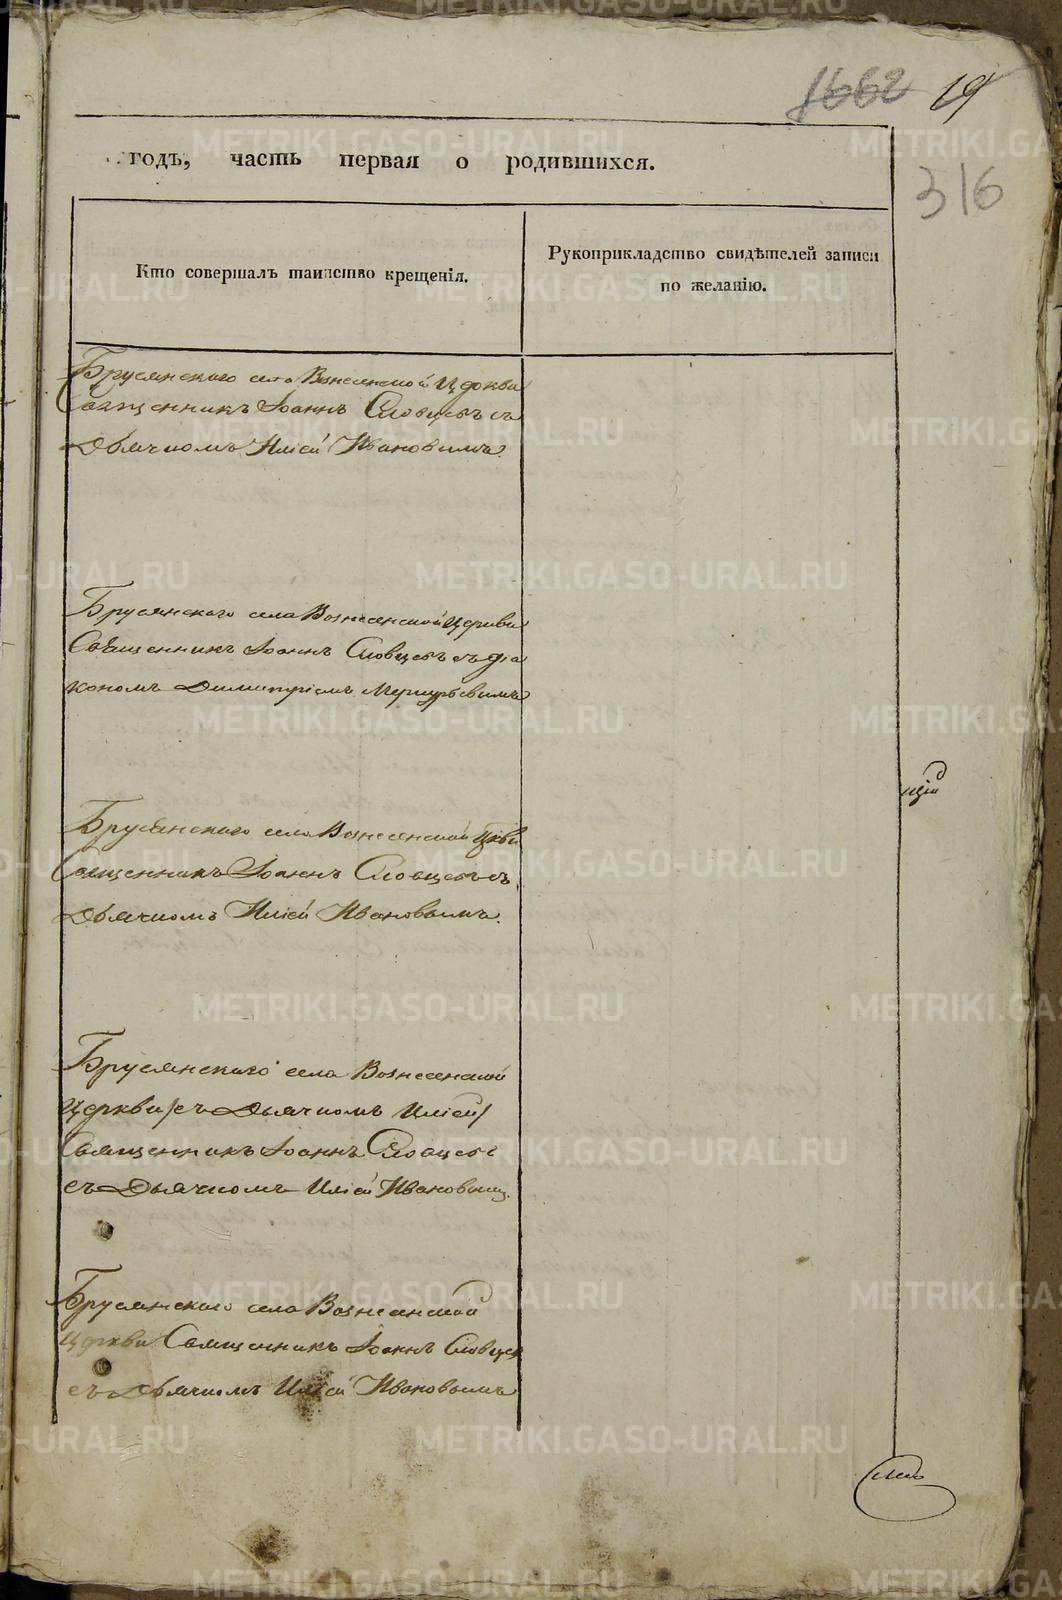 1662 19
316
годъ, часть первая о родившихся.
Кто совершалъ таинство крещенія.
Рукоприкладство свидѣтелей записи
по желанію.
Брусянского села Вознесенской Церкви
Священникъ Іоаннъ Словцевъ съ
Дьячкомъ Иліей Ивановымъ.
Брусянского села Вознесенской Церкви
Священникъ Іоаннъ Словцевъ съ діа
кономъ Димитріемъ Меркурьевимъ
Брусянского села Вознесенской Цркви
Священникъ Іоаннъ Словцевъ съ
Дьячкомъ Иліей Ивановымъ.
Брусянского села Вознесенской
Церкви /съ Дьячкомъ Иліей/
Священникъ Іоаннъ Словцевъ
съ Дьячкомъ Иліей Ивановым.
Брусянского села Вознесенской
Церкви Священникъ Іоаннъ Словцев
съ Дьячкомъ Иліей Ивановымъ
METRIKI.GASO-URAL.RU